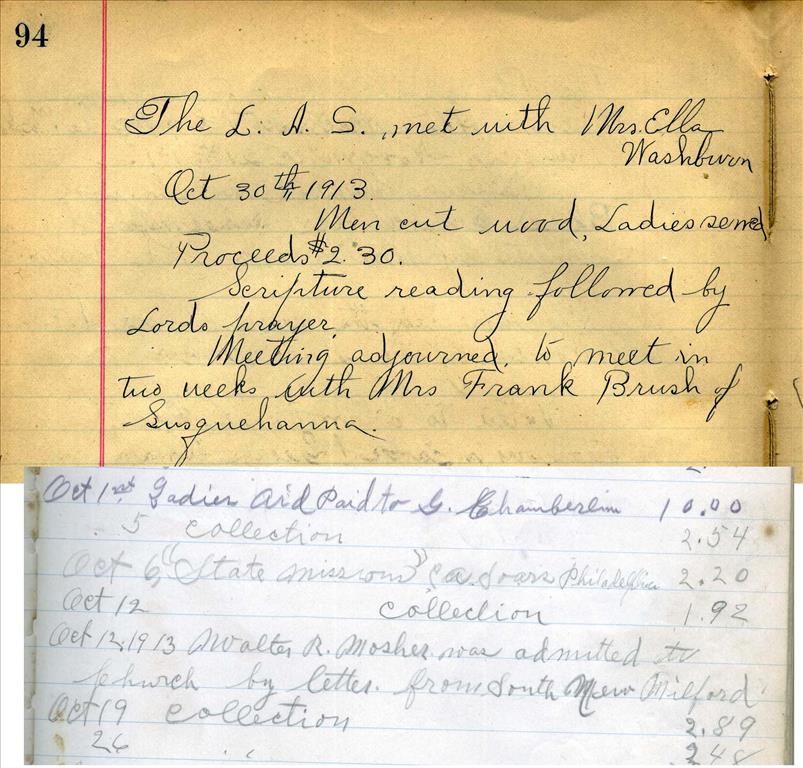 94
The L. A. S. met with Mrs. Ella
Washburn
Oct 30th 1913.
Men cut wood, Ladies sewed
Proceeds $2.30.
Scripture reading followed by
Lords prayer.
Meeting adjourned, to meet in
two weeks with Mrs Frank Brush of
Susquehanna.
Oct 1st Ladies Aid Paid to G. Chamberlin 10.00
5 collection 2.54
Oct 6 "State missions" Philadelphia 2.20
Oct 12 collection 1.92
Oct 12, 1913 Walter R. Mosher was admitted to
church by letter from South New Milford
Oct 19 collection 2.89
26 " 2.48